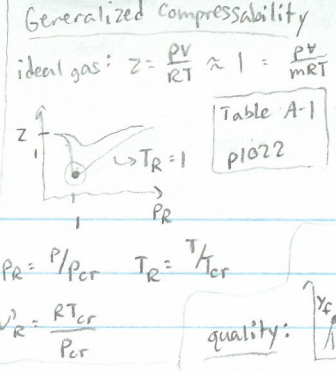 Generalized Compressability
ideal gas: Z = PV/RT ≈ 1 = PV/mRT
Table A-1
p1022
Z
1
→ T_R = 1
1
P_R
P_R = P/P_cr T_R = T/T_cr
V'_R = RT_cr/P_cr
quality: